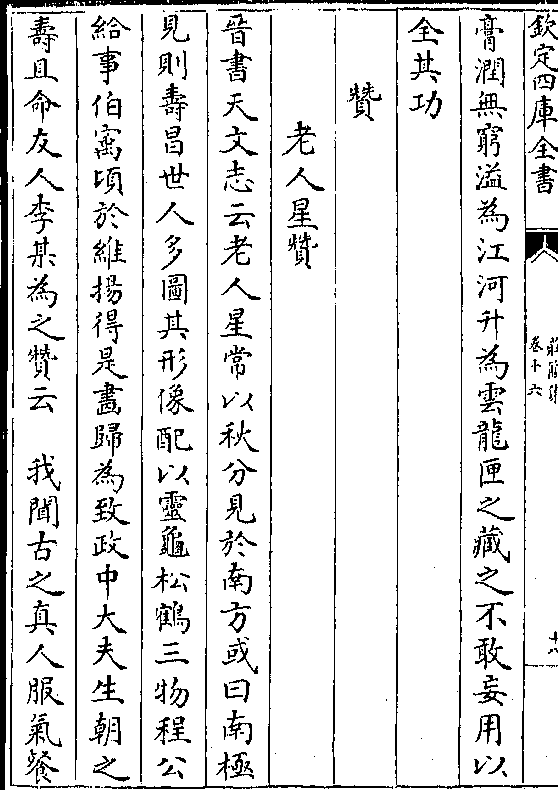 欽定四庫全書
卷十六
膏潤無窮溢為江河升為雲龍匣之藏之不敢妄用以
全其功
贊
老人星贊
晉書天文志云老人星常以秋分見於南方或曰南極
見則壽昌世人多圖其形像配以靈龜松鶴三物程公
給事伯寓頃於維揚得是畫歸為致政中大夫生朝之
壽且命友人李某為之贊云　我聞古之真人服氣餐